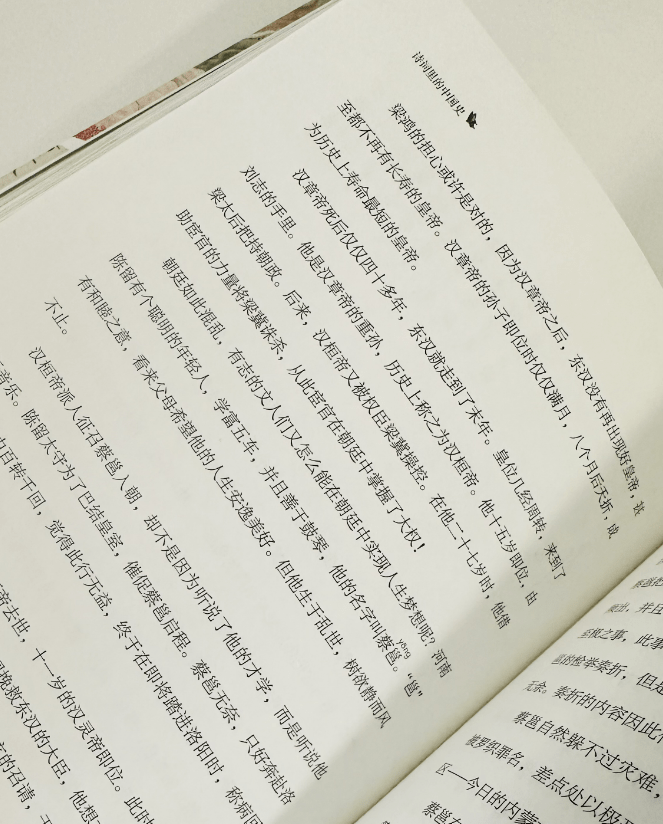 诗词里的中国史
梁鸿的担心或许是对的，因为汉章帝之后，东汉没有再出现好皇帝，甚
至都不再有长寿的皇帝。汉章帝的孙子即位时仅仅满月，八个月后夭折，成
为历史上寿命最短的皇帝。
汉章帝死后仅仅四十多年，东汉就走到了末年。皇位几经周转，来到了
刘志的手里。他是汉章帝的重孙，历史上称之为汉桓帝。他十五岁即位，由
梁太后把持朝政。后来，汉桓帝又被权臣梁冀操控。在他二十七岁时，他借
助宦官的力量将梁冀诛杀，从此宦官在朝廷中掌握了大权！
朝廷如此混乱，有志的文人们又怎么能在朝廷中实现人生梦想呢？河南
陈留有个聪明的年轻人，学富五车，并且善于鼓琴，他的名字叫蔡邕。“邕”
yōng
有和睦之意，看来父母希望他的人生安逸美好。但他生于乱世，树欲静而风
不止。
汉桓帝派人征召蔡邕入朝，却不是因为听说了他的才学，而是听说他
音乐。陈留太守为了巴结皇室，催促蔡邕启程。蔡邕无奈，只好奔赴洛
百转千回，觉得此行无益，终于在即将踏进洛阳时，称病回
帝去世，十一岁的汉灵帝即位。此时
挽救东汉的大臣，他想
的召请，
并且
之事，此事
的检举奏折，但是
无余。奏折的内容因此
蔡邕自然躲不过灾难，
被罗织罪名，差点处以极
区——今日的内蒙
蔡邕